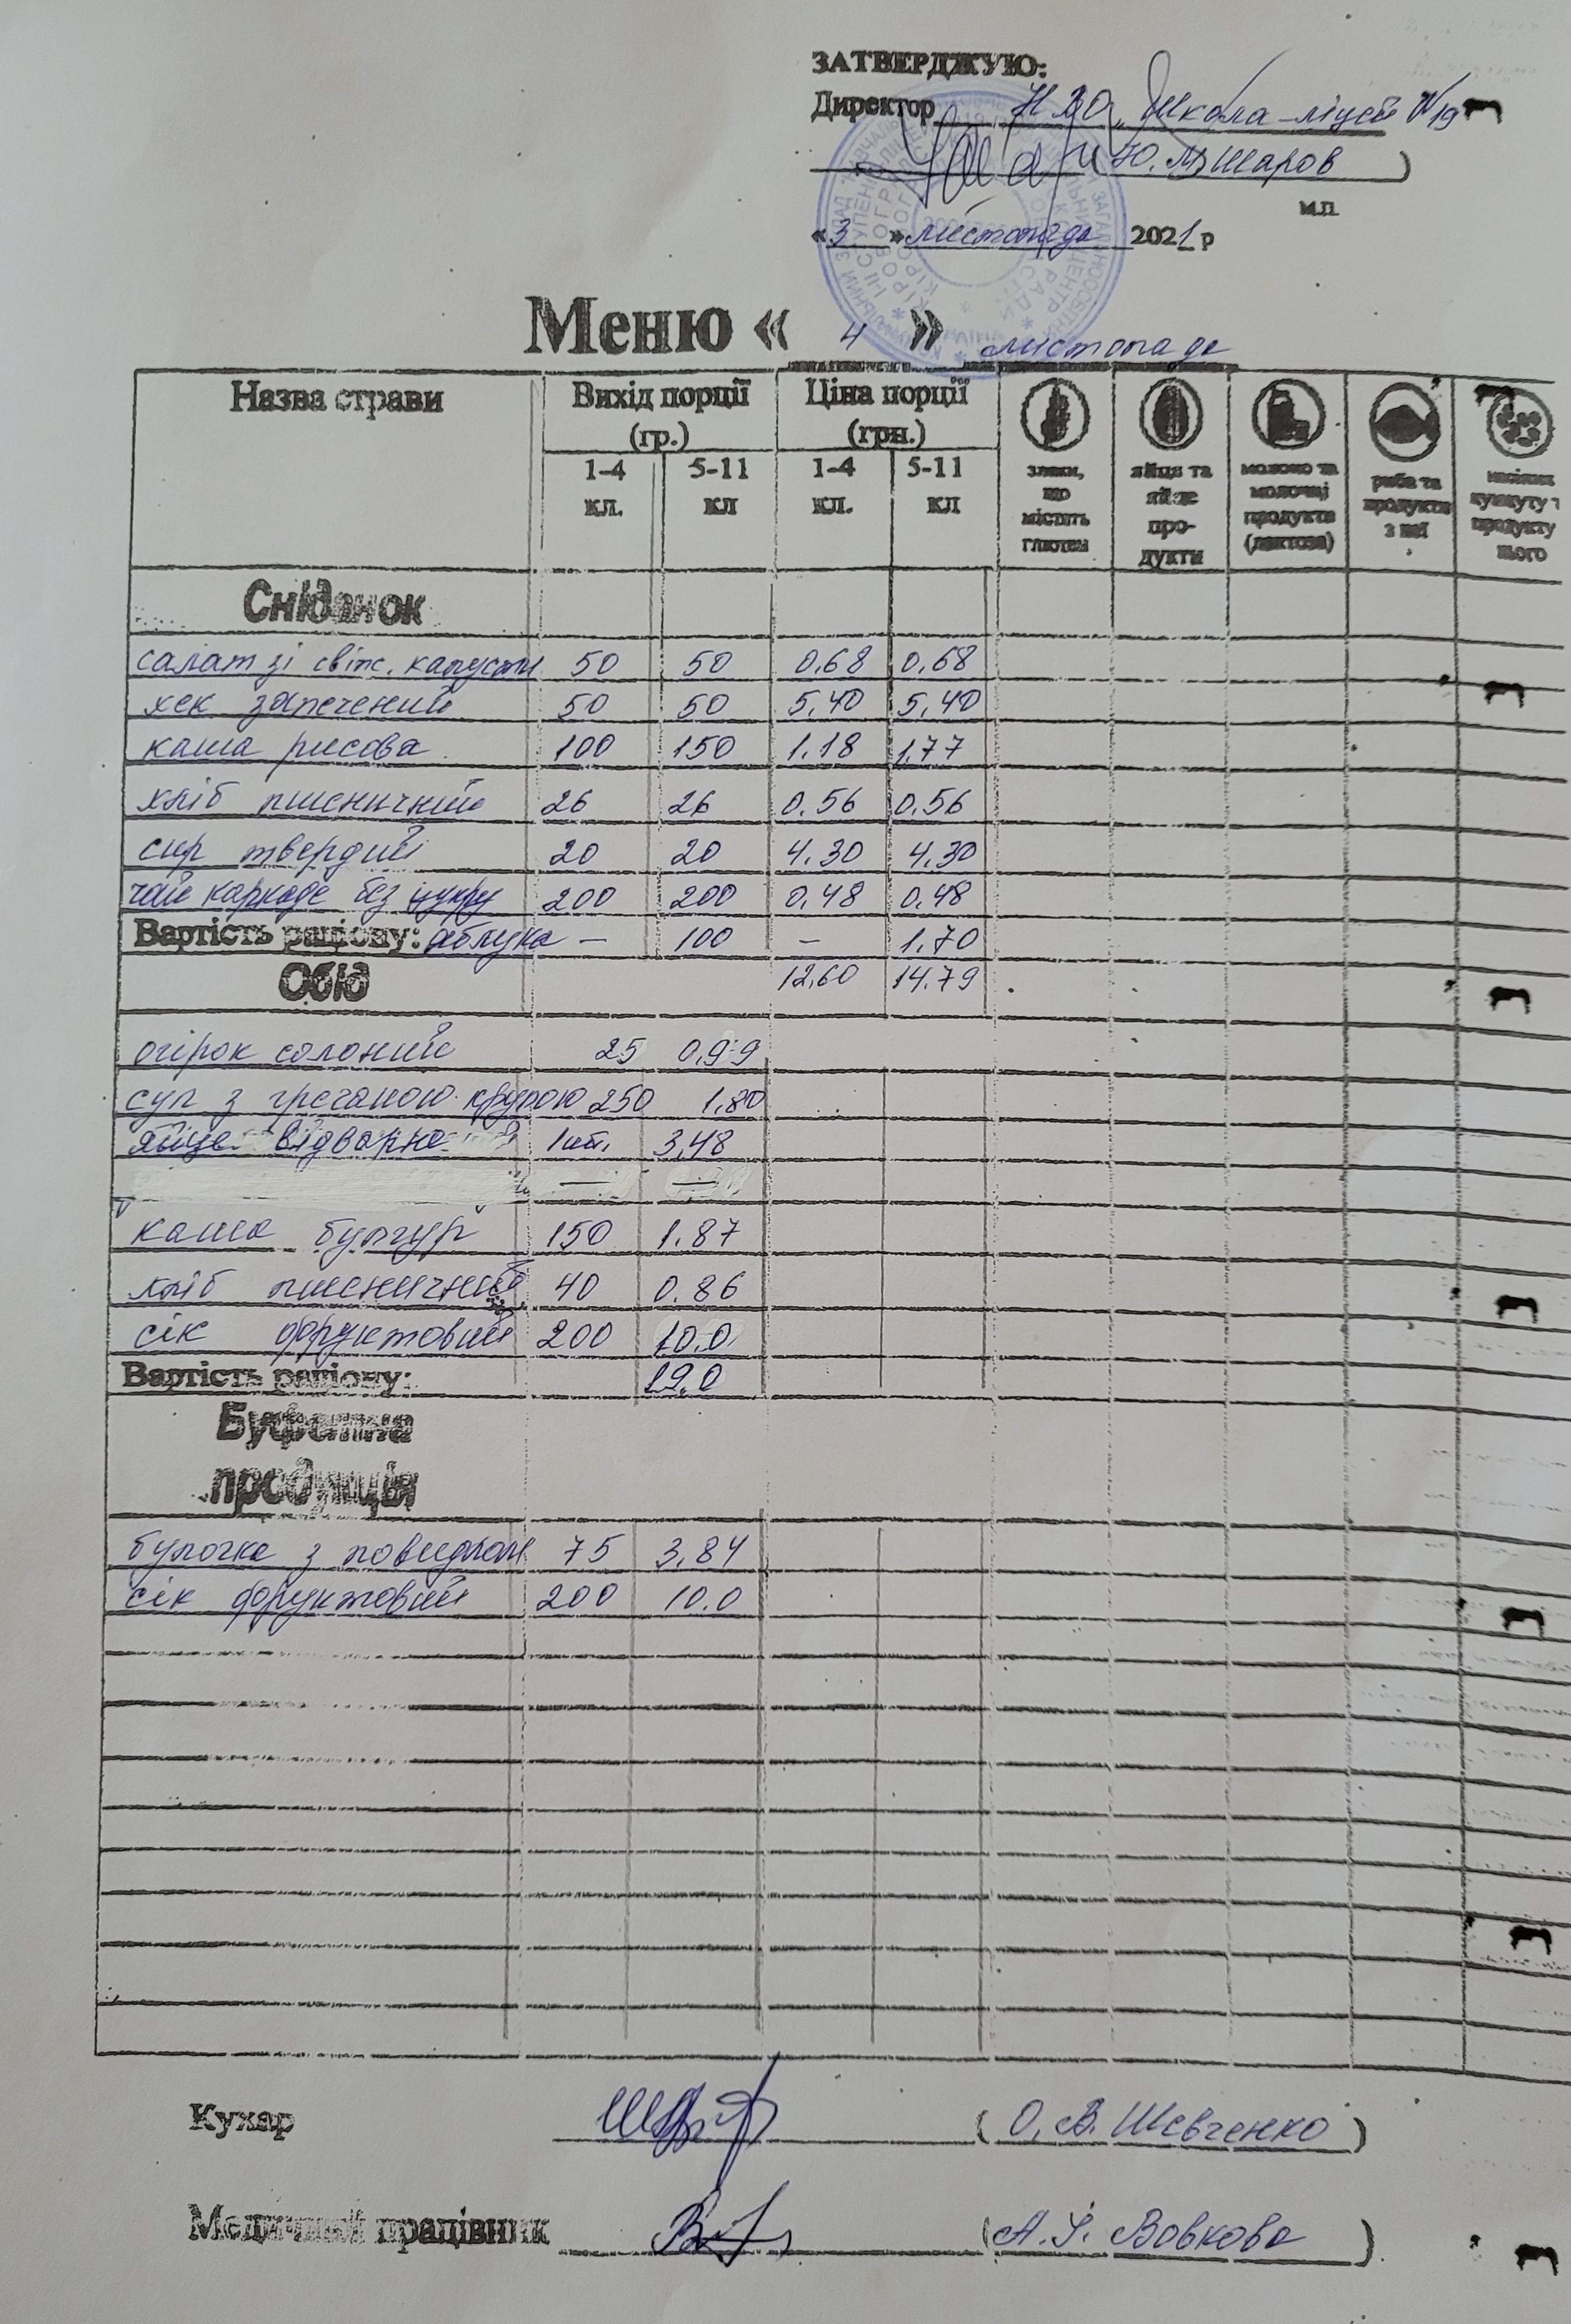 ЗАТВЕРДЖУЮ:
Директор НВО „Школа-ліцей №19
(Ю.М. Шаров)
М.П.
«3» листопада 2021 р
Меню « 4 » листопада
Назва страви Вихід порції (гр.) Ціна порції (грн.)
1-4 кл. 5-11 кл 1-4 кл. 5-11 кл
злаки, що містять глютен
яйця та яйце про-дукти
молоко та молочні продукти (лактоза)
риба та продукти з неї
кунжуту
продукту
нього
Сніданок
салат зі свіж. капусти 50 50 0.68 0.68
хек запечений 50 50 5.40 5.40
каша рисова 100 150 1.18 1.77
хліб пшеничний 26 26 0.56 0.56
сир твердий 20 20 4.30 4.30
чай каркаде без цукру 200 200 0.48 0.48
Вартість раціону: яблука — 100 — 1.70
Обід 12.60 14.79
огірок солоний 25 0.99
суп з гречаною крупою 250 1.80
яйце відварне 1шт. 3,48
— —
каша булгур 150 1.87
хліб пшеничний 40 0.86
сік фруктовий 200 10.0
Вартість раціону: 19.0
Буфетна
продукція
булочка з повидлом 75 3.84
сік фруктовий 200 10.0
Кухар (О.В. Шевченко)
Медичний працівник (А.І. Вовкова)